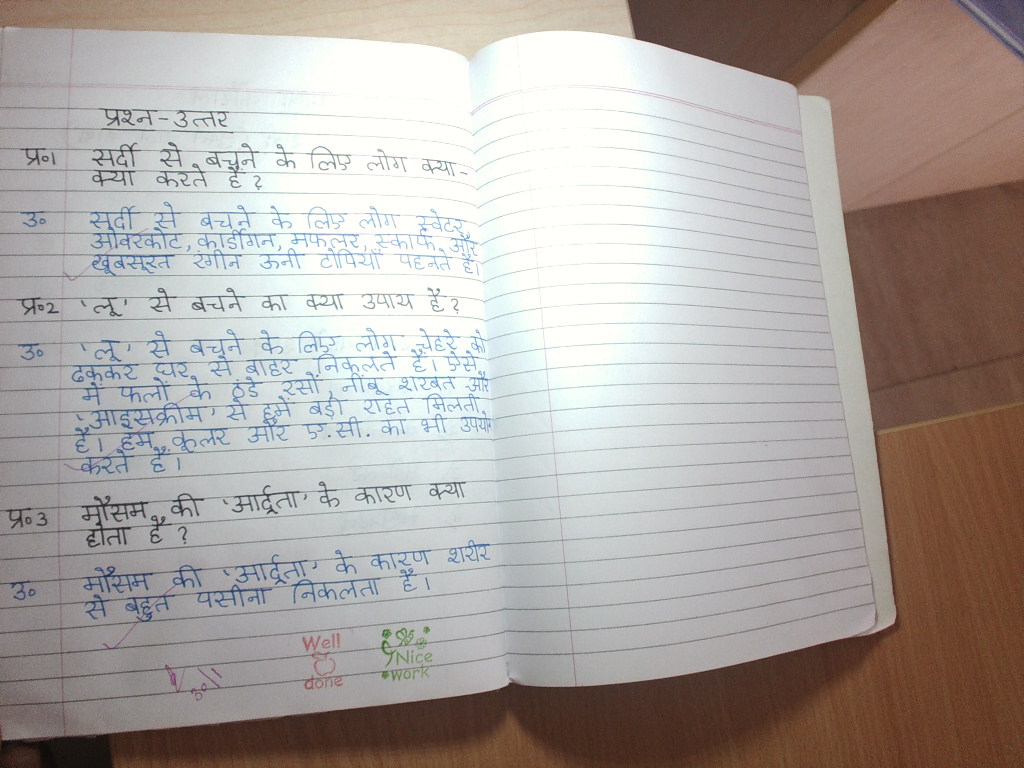 प्रश्न-उत्तर
प्र०1 सर्दी से बचने के लिए लोग क्या-
क्या करते हैं?
उ० सर्दी से बचने के लिए लोग स्वेटर,
ओवरकोट, कार्डीगन, मफलर, स्कार्फ और
खूबसूरत रंगीन ऊनी टोपियाँ पहनते हैं।
प्र०2 'लू' से बचने का क्या उपाय है?
उ० 'लू' से बचने के लिए लोग चेहरे को
ढककर घर से बाहर निकलते हैं। ऐसे
में फलों के ठंडे रसों, नींबू शरबत और
'आइसक्रीम' से हमें बड़ी राहत मिलती
है। हम कूलर और ए.सी. का भी उपयोग
करते हैं।
प्र०3 मौसम की 'आर्द्रता' के कारण क्या
होता है?
उ० मौसम की 'आर्द्रता' के कारण शरीर
से बहुत पसीना निकलता है।
Well
done
Nice
work